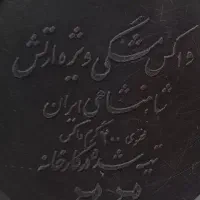 واکس مشکی ویژه ارتش
شاهنشاهی ایران
محتوی ۲۰۰ گرم واکس
تهیه شده در کارخانه